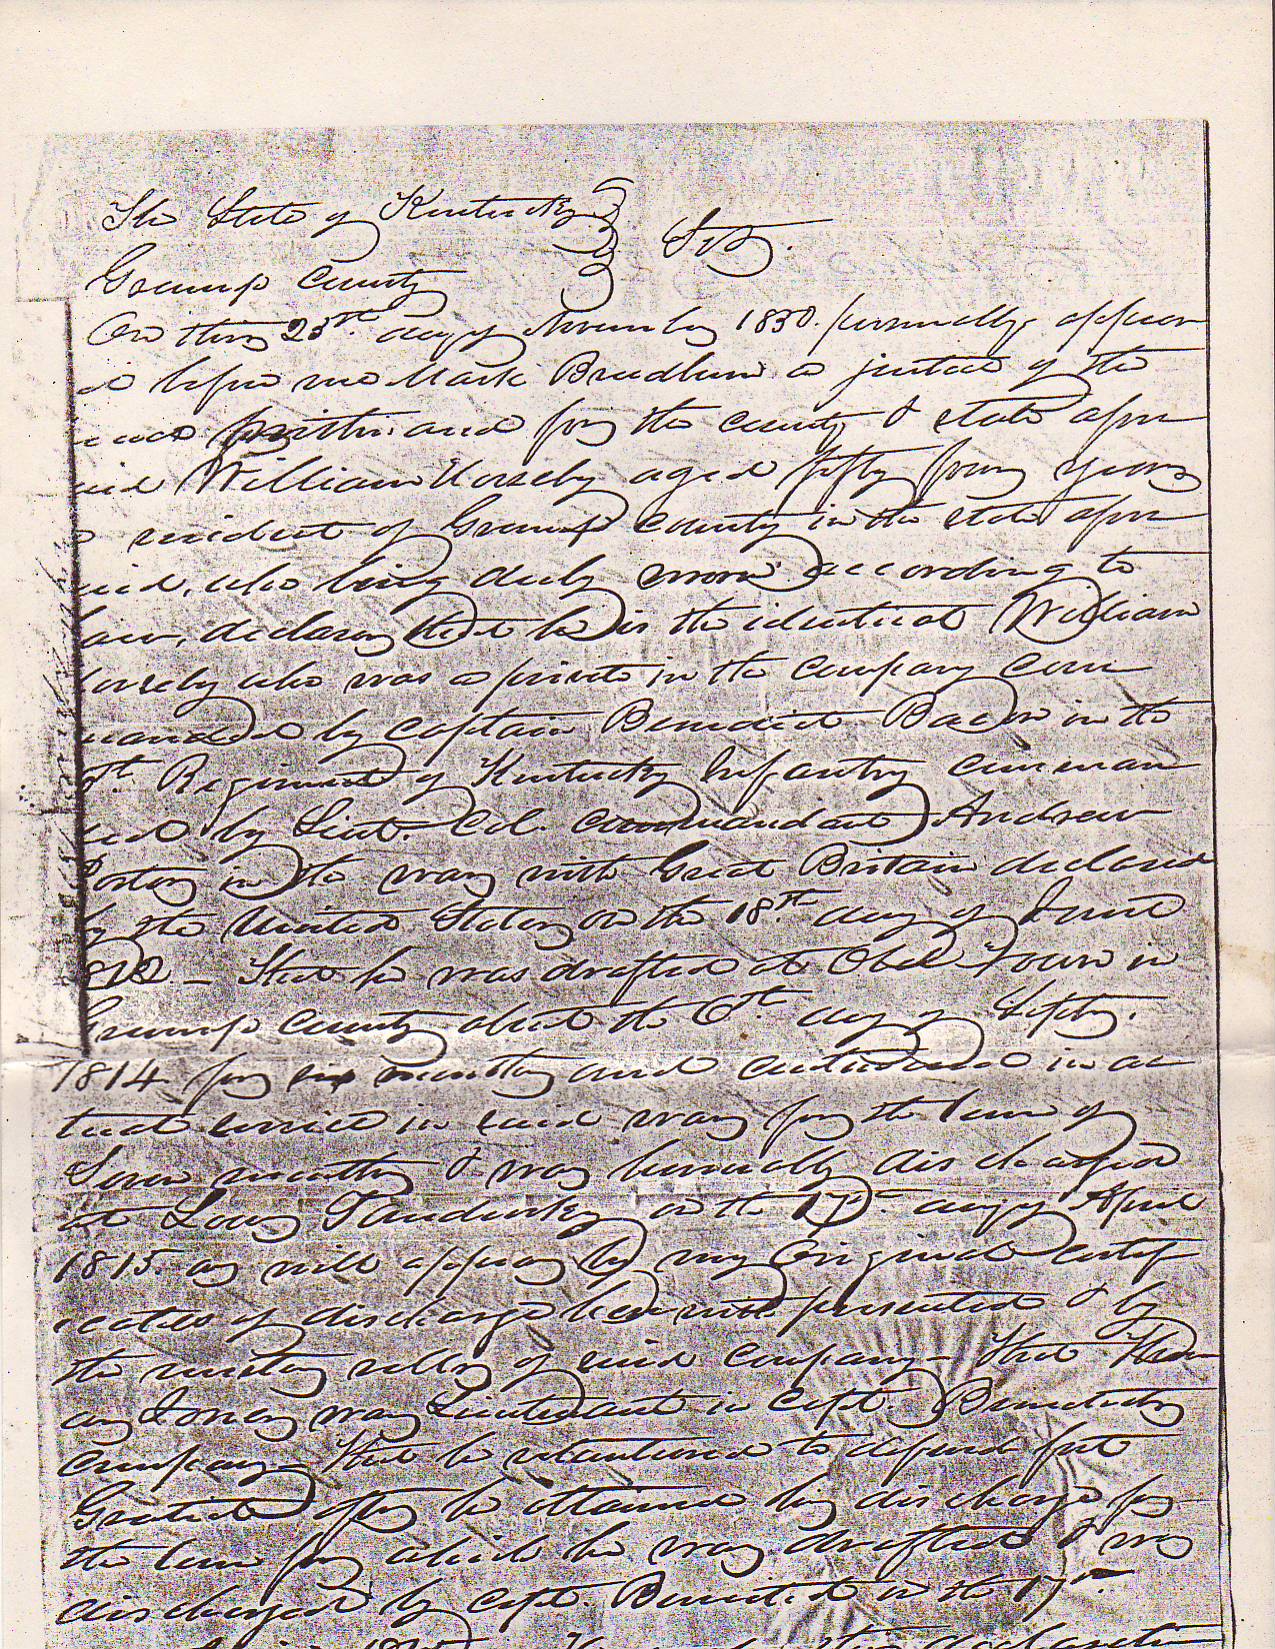 The State of Kentucky
Sct.
Greenup County
On this 23rd day of November 1850. personally appear
ed before me Mark Breedlove a justice of the
peace within and for the County & state afore
said William Horseley aged fifty four years
a resident of Greenup County in the state afore
said, who being duly sworn according to
law, declares that he is the identical William
Horseley who was a private in the company com
manded by Captain Benedict Bacon in the
Regiment of Kentucky Infantry comman
ded by Lieut. Col. Commandant Andrew
Porter in the war with Great Britain declared
by the United States on the 18th day of June
1812 – That he was drafted at Town in
Greenup County about the 6th day of Septr.
1814 for six months and continued in ac
tual service in said war for the term of
Seven months & was honorably discharged
at on the 17th day of April
1815 as will appear by my original certifi
cates of discharge herewith presented & by
the muster rolls of said company – That Thom
as Jones was Lieutenant in Capt Benedicts
Company – That he volunteered to defend fort
Gratiot after he obtained his discharge for
the term for which he was drafted & was
discharged by Capt. Benedict on the 17th